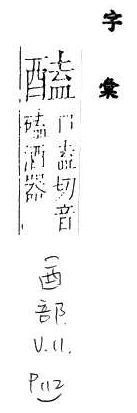 字彙
醘
口盍切音
磕酒器
(酉
部
V.11.
P112)